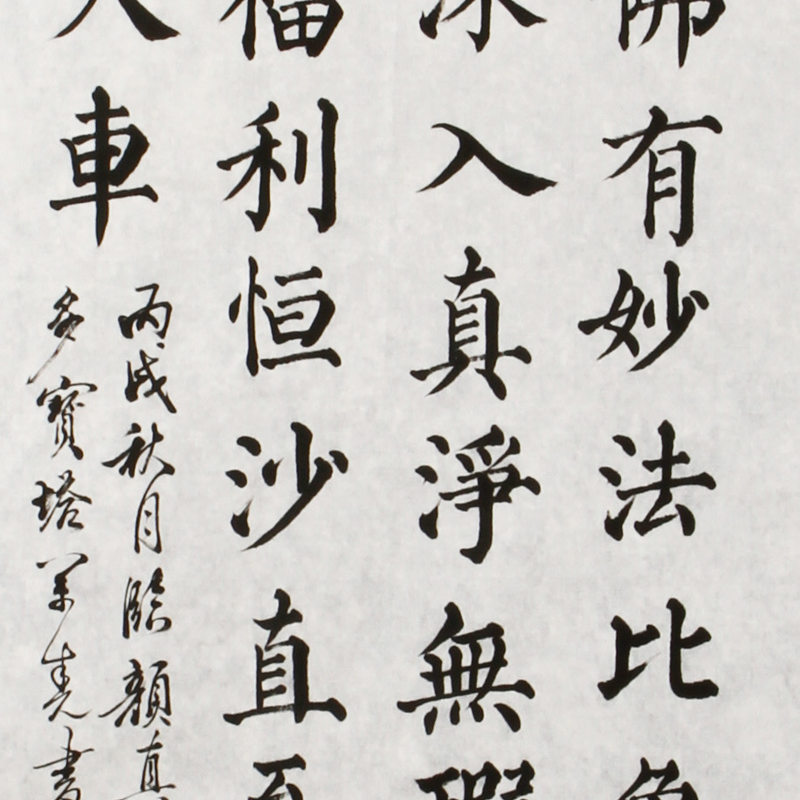 佛有妙法比象
深入真淨無瑕
福利恒沙直至
大車
丙戌秋月臨顏真
多寶塔書